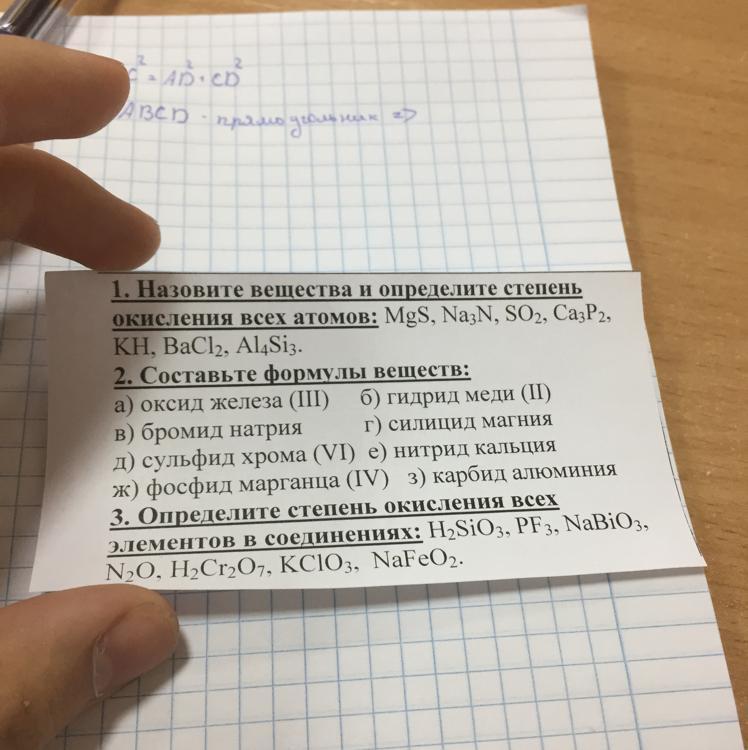 C² = AD² + CD²
ABCD - прямоугольник =>
1. Назовите вещества и определите степень
окисления всех атомов: MgS, Na₃N, SO₂, Ca₃P₂,
KH, BaCl₂, Al₄Si₃.
2. Составьте формулы веществ:
а) оксид железа (III) б) гидрид меди (II)
в) бромид натрия г) силицид магния
д) сульфид хрома (VI) е) нитрид кальция
ж) фосфид марганца (IV) з) карбид алюминия
3. Определите степень окисления всех
элементов в соединениях: H₂SiO₃, PF₃, NaBiO₃,
N₂O, H₂Cr₂O₇, KClO₃, NaFeO₂.